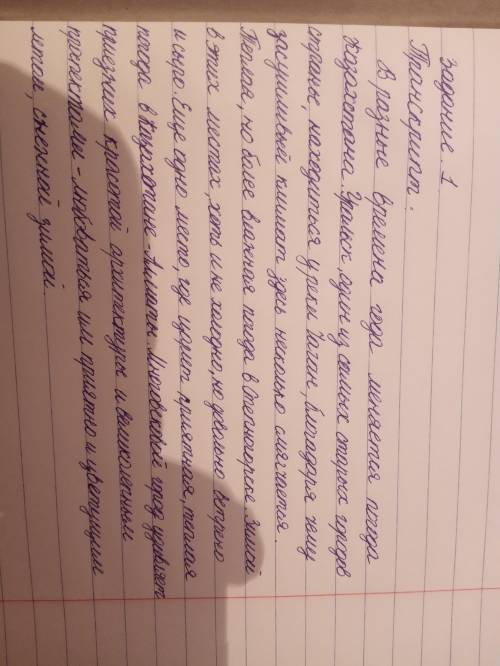 Задание 1
Транскрипт:
В разные времена года меняется погода
Казахстана. Уральск, один из самых старых городов
страны, находиться у реки Чаган, благодаря чему
засушливый климат здесь несколько смягчается.
Теплая, но более влажная погода в Степногорье. Зимой
в этих местах, хоть и не холодно, но довольно ветрено
и сыро. Еще одно место, где царит приятная, теплая
погода в Казахстане - Алматы. Многовековый город удивляет
приезжих красотой архитектуры и великолепными
проектами - любоваться им приятно и цветущим
летом, снежной зимой.